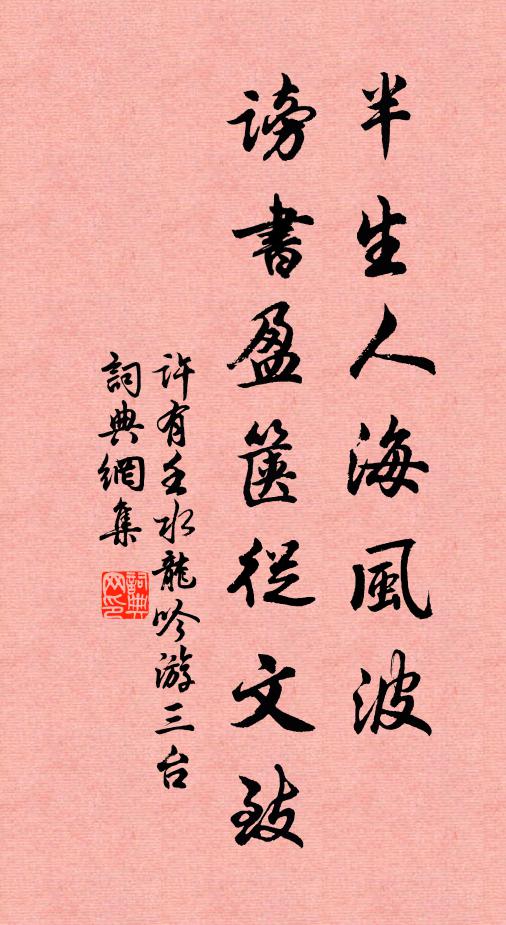 半生人海風波
謗書盈篋從文致
許有壬水龍吟游三台
詞典網集
詞典網印